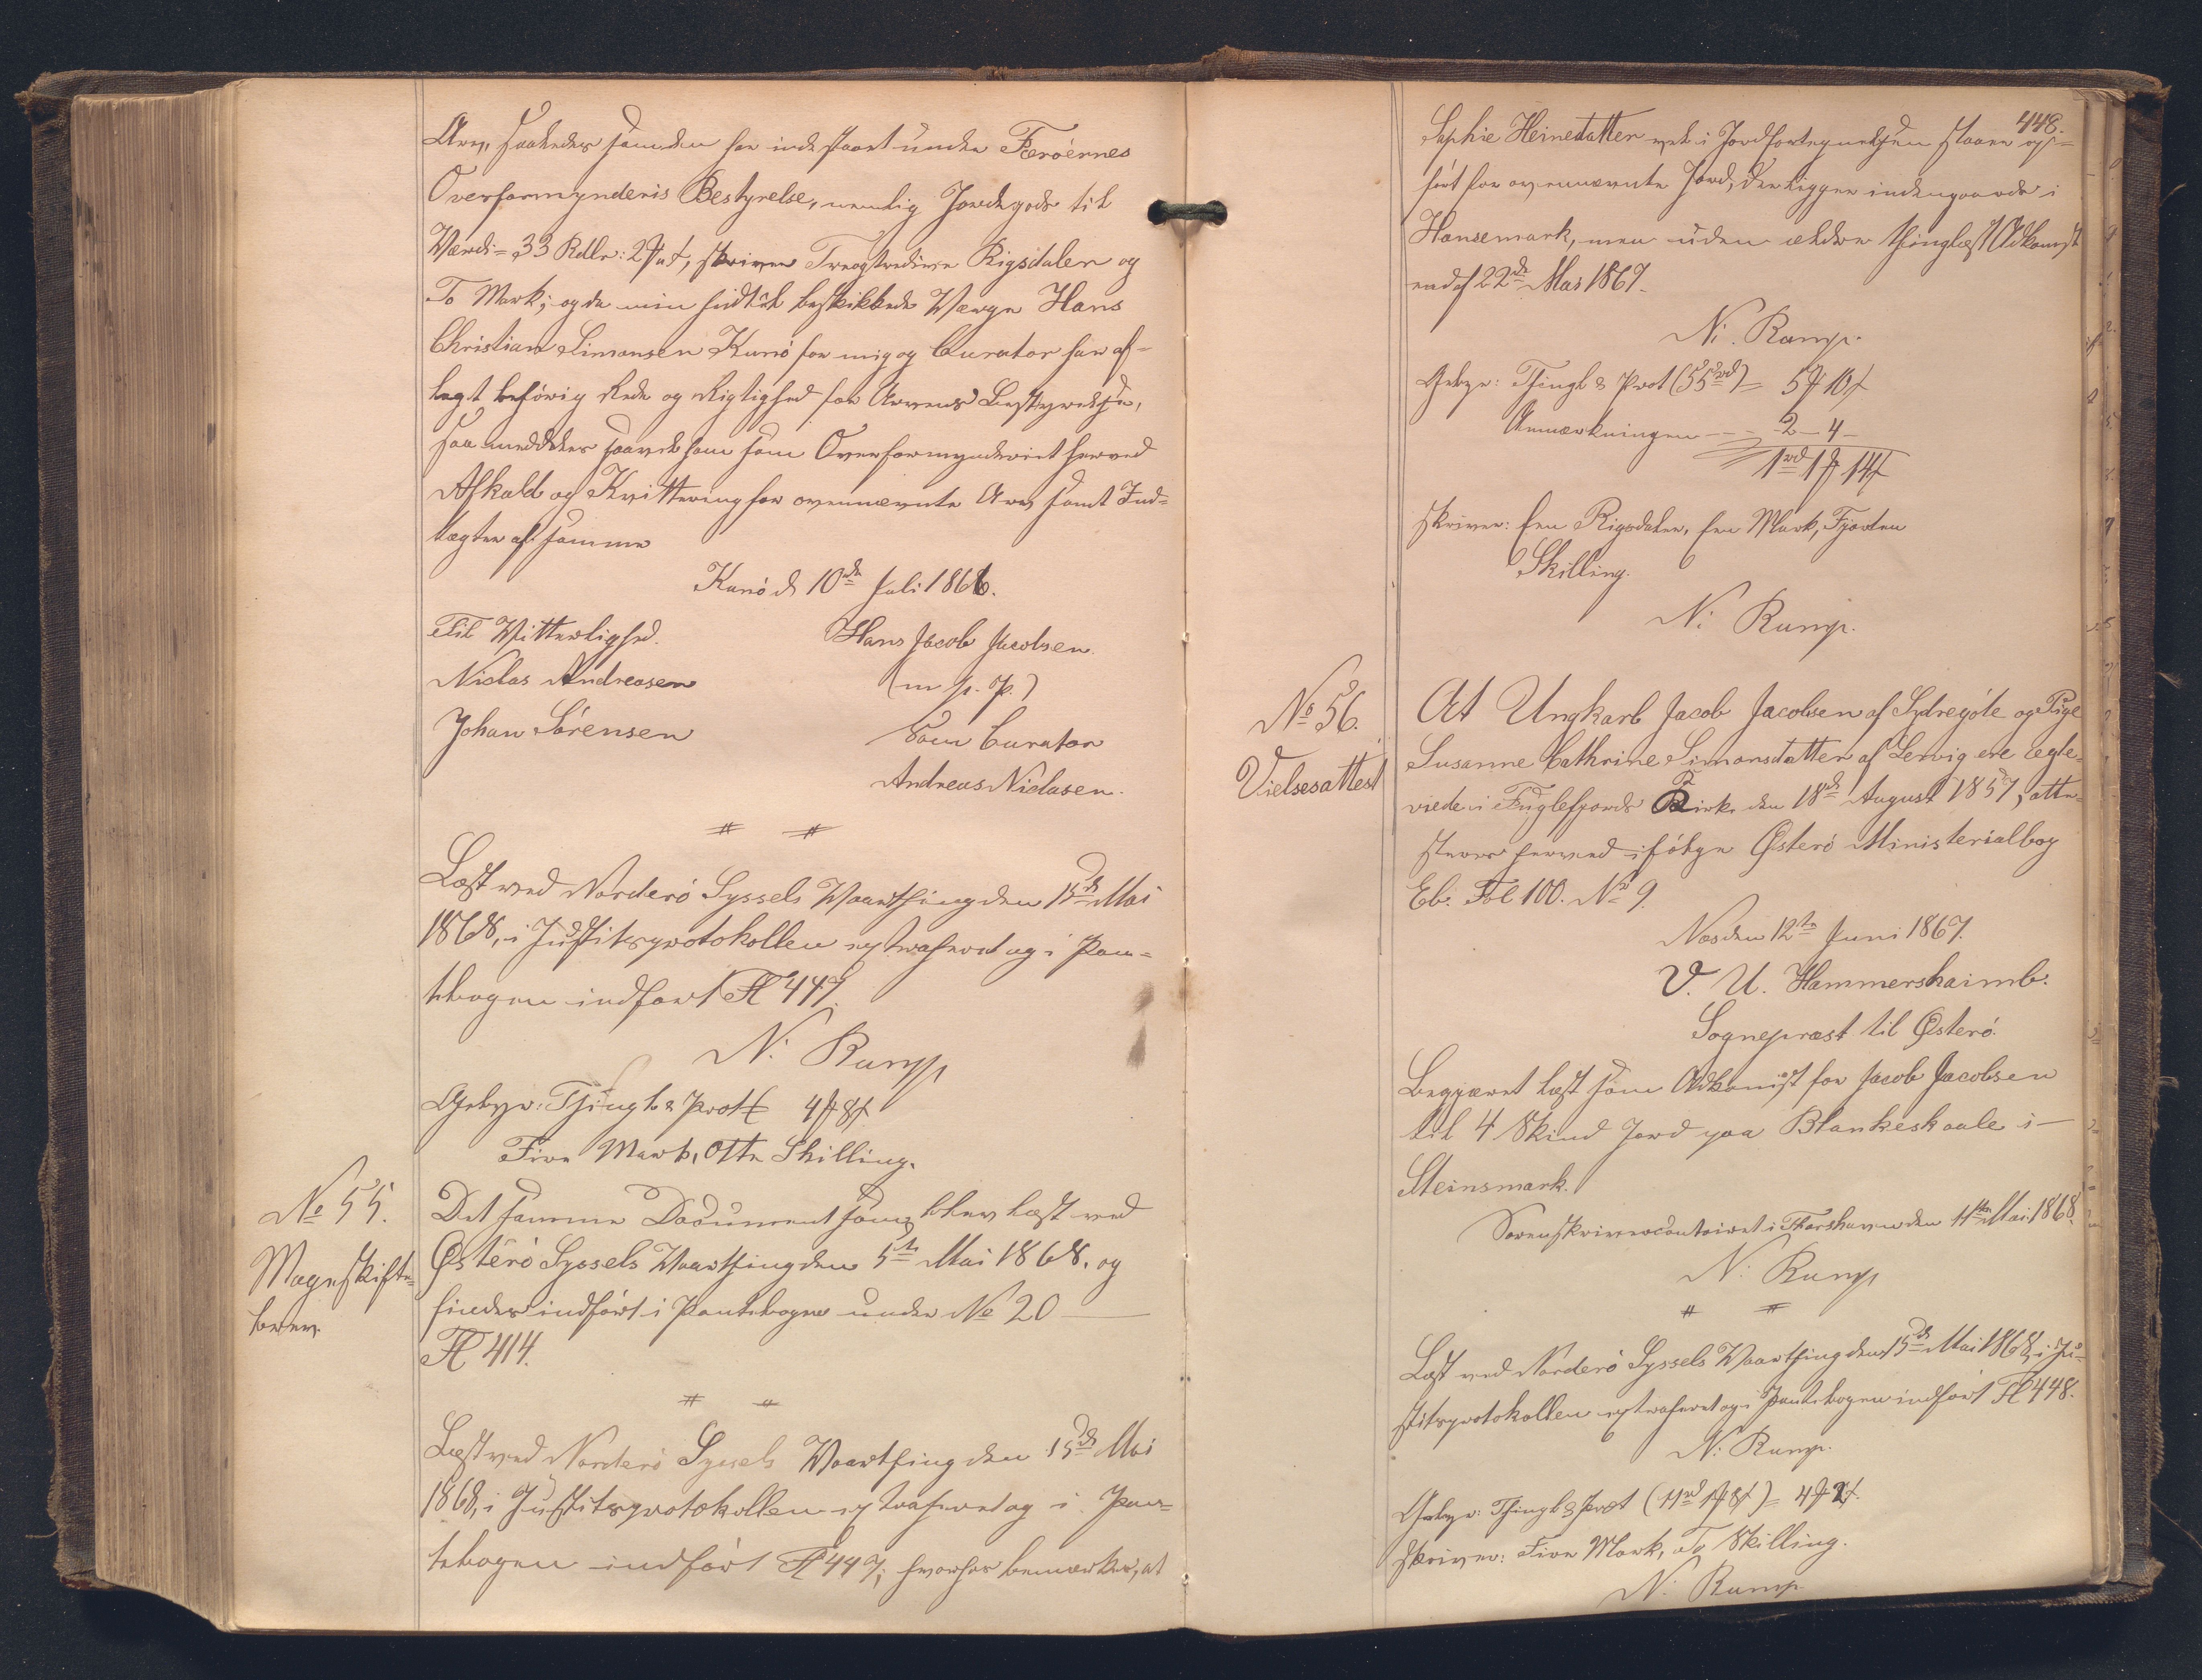 Arv, saaledes som den har indestaaet under Færøernes
Overformynderis Bestyrelse, nemlig Jordegods til
Værdi = 33 Rdlr: 2 # " ß, skriver Treogtredive Rigsdaler og
To Mark; og da min hidtil beskikkede Værge Hans
Christian Simonsen Kunø for mig og Curator har af-
lagt behørig Rede og Rigtighed for Arvens Bestyrelse,
saa meddeles saavel ham som Overformynderiet herved
Afkald og Kvittering for ovennævnte Arv samt Ind-
tægter af samme
Kunø d 10de Juli 1866.
Til Vitterlighed. Hans Jacob Jacobsen.
Niclas Andreasen (m. p. P.)
Johan Sørensen Som Curator
Andreas Niclasen.
Læst ved Norderø Syssels Vaarthing den 15de Mai
1868, i Justitsprotokollen extraheret og i Pan-
tebogen indført Fl 447.
N. Rump
Gebyr: Thingl & Prot 4 # 8 ß
Fire Mark, Otte Skilling.
No 55.
Mageskifte-
brev.
Det samme Document som blev læst ved
Østerø Syssels Vaarthing den 5te Mai 1868. og
findes indført i Pantebogen under No 20
Fl 414.
Læst ved Norderø Syssels Vaarthing den 15de Mai
1868, i Justitsprotokollen extraheret og i Pan-
tebogen indført Fl 447; hvorhos bemærkes, at
448.
Sophie Heinedatter vel i Jordfortegnelsen staaer op-
ført for ovennævnte Jord, der ligger indengaards i
Hansemark, men uden ældre thinglæst Adkomst
end af 22de Mai 1867.
N. Rump.
Gebyr: Thingl & Prot (55 rd) = 5 # 10 ß
Anmærkningen - - - 2 - 4 -
1 rd 1 # 14 ß
skriver: Een Rigsdaler, Een Mark, Fjorten
Skilling.
N. Rump.
No 56.
Vielsesattest
At Ungkarl Jacob Jacobsen af Sydregøte og Pige
Susanne Cathrine Simonsdatter af Lervig ere ægte-
viede i Fuglefjords Kirke den 18de August 1857, atte-
steres herved ifølge Østerø Ministerialbog
Eb. Fol 100. No 9.
Næs den 12te Juni 1867.
V. U. Hammershaimb.
Sognepræst til Østerø.
Begjæret læst som Adkomst for Jacob Jacobsen
til 4 Skind Jord paa Blankeskaale i
Steinsmark.
Sorenskrivercontoiret i Thorshavn den 11te Mai 1868.
N. Rump
Læst ved Norderø Syssels Vaarthing den 15de Mai 1868, i Ju-
stitsprotokollen extraheret og i Pantebogen indført Fl 448.
N. Rump.
Gebyr: Thingl & Prot (11 rd 1 # 8 ß) = 4 # 2 ß.
skriver: Fire Mark, To Skilling.
N. Rump.